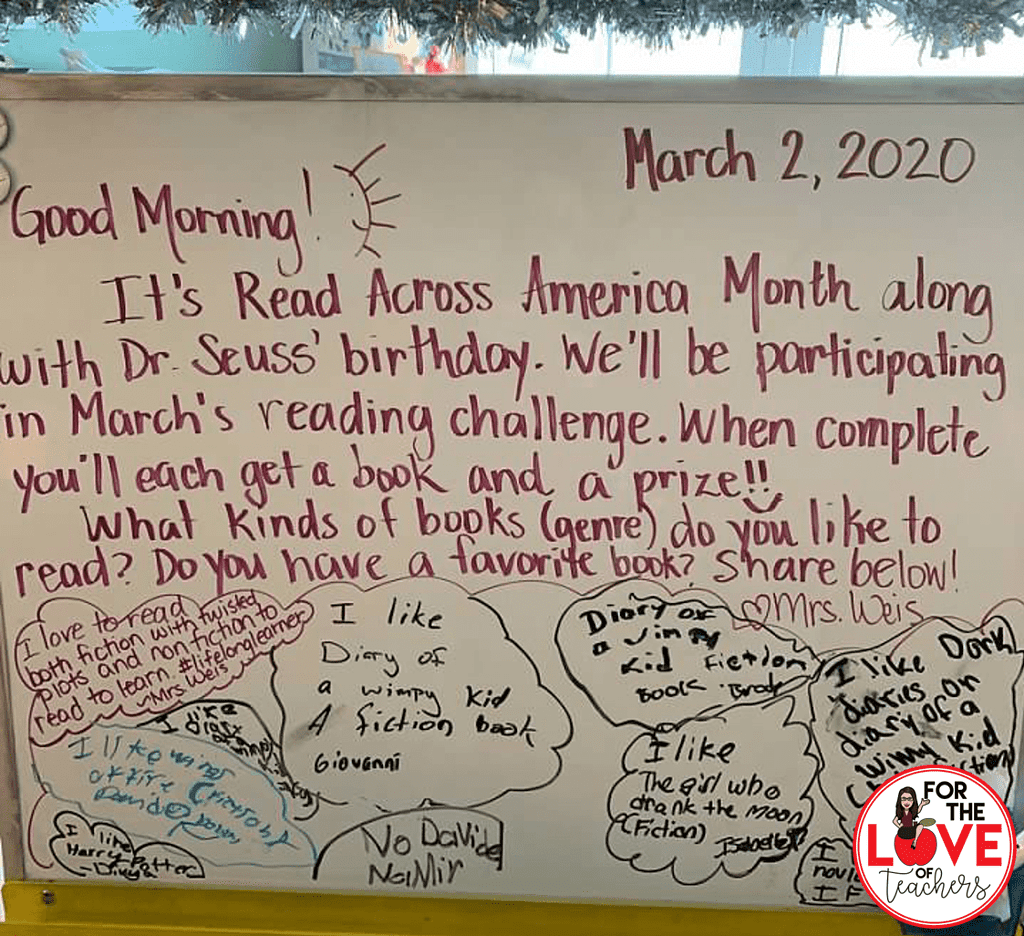 March 2, 2020
Good Morning!
It's Read Across America Month along
with Dr. Seuss' birthday. We'll be participating
in March's reading challenge. When complete
you'll each get a book and a prize!!
What kinds of books (genre) do you like to
read? Do you have a favorite book? Share below!
♡Mrs. Weis
I love to read
both fiction with twisted
plots and non fiction to
read to learn. #lifelonglearner
~Mrs Weis
I like
Diary of
a wimpy kid
A fiction book
Giovanni
Diary of
a wimpy
kid Fiction
Book
I like Dork
diaries or
diary of a
wimpy kid
I like
diary
I like wings
of fire
I like
Harry Potter
No David
Namir
I like
The girl who
drank the moon
(Fiction)
I
I F
FOR
THE
LOVE
OF
teachers